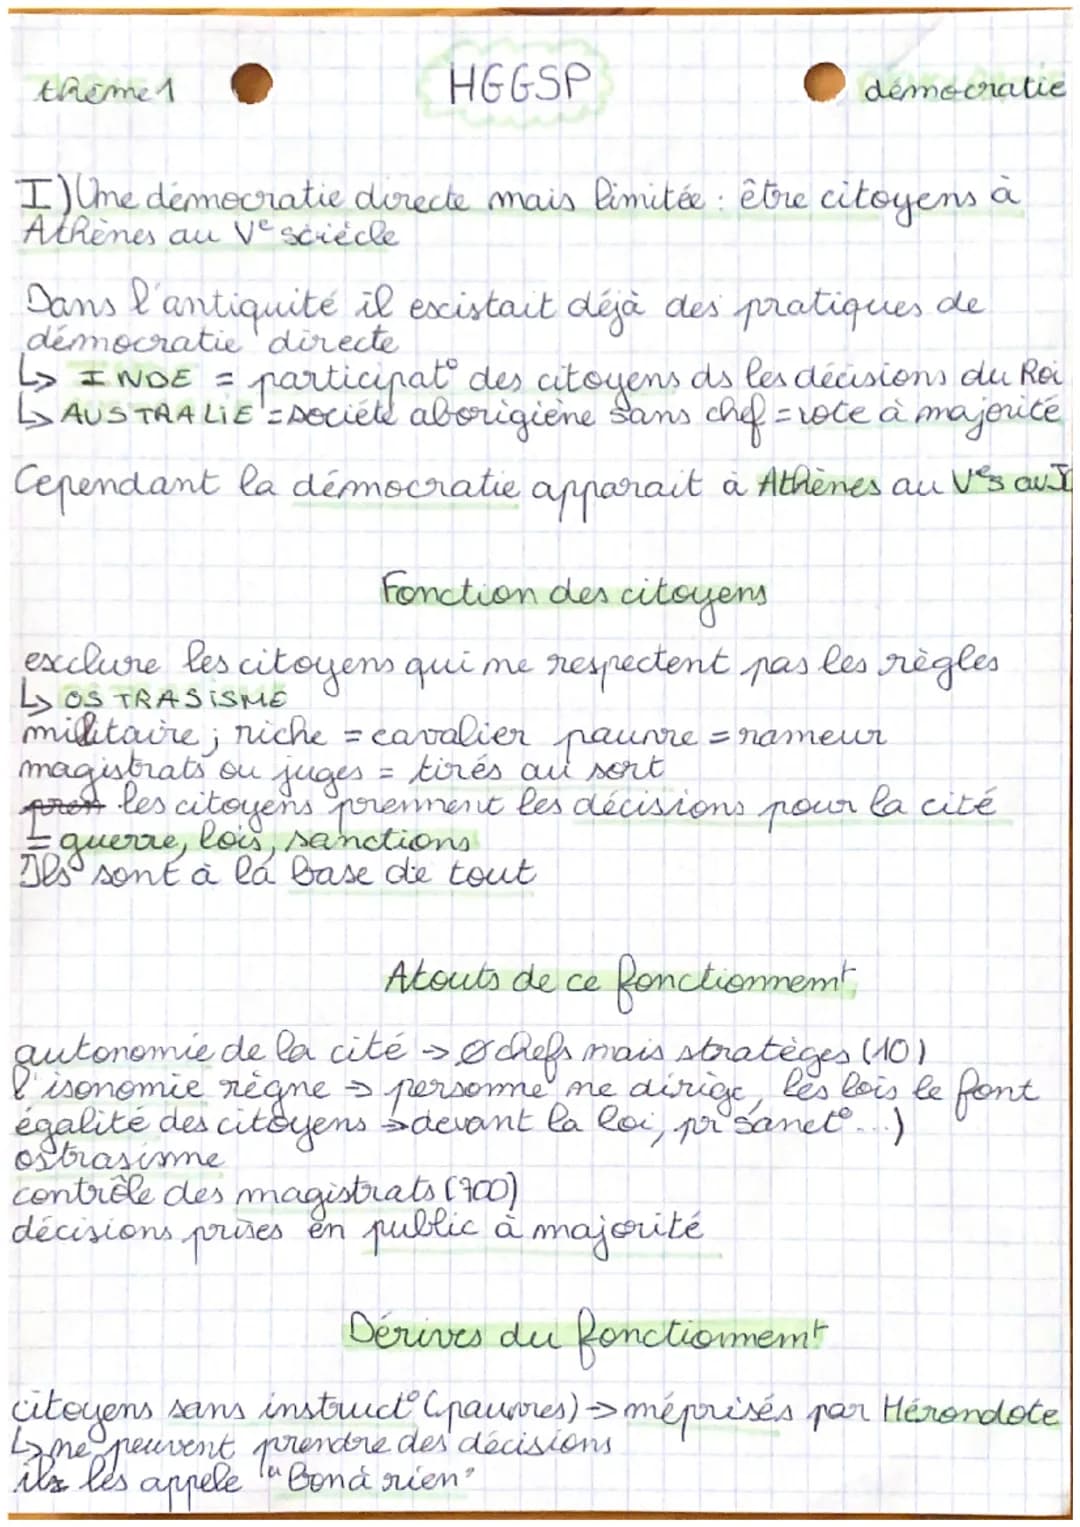 thème 1
HGGSP
démocratie
I) Une démocratie directe mais limitée : être citoyens à
Athènes au Vᵉ sciècle
Dans l'antiquité il escistait déjà des pratiques de
démocratie directe
↳ INDE = participat° des citoyens ds les décisions du Roi
↳ AUSTRALIE = société aborigiène sans chef = vote à majorité
Cependant la démocratie apparait à Athènes au Vᵉs av J
Fonction des citoyens
exclure les citoyens qui ne respectent pas les règles
↳ OSTRASISME
militaire ; riche = cavalier pauvre = rameur
magistrats ou juges = tirés au sort
les citoyens prennent les décisions pour la cité
= guerre, lois, sanctions
Ils sont à la base de tout
Atouts de ce fonctionnemt
autonomie de la cité → Ø chefs mais stratèges (10)
l'isonomie règne → personne ne dirige, les lois le font
égalité des citoyens → devant la loi, pr sanct°...)
ostrasisme
contrôle des magistrats (700)
décisions prises en public à majorité
Dérives du fonctionnemt
citoyens sans instruct° (pauvres) → méprisés par Hérondote
↳ ne peuvent prendre des décisions
ils les appele "Bon à rien"